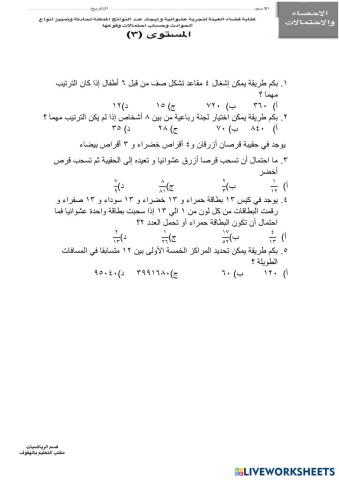 الاحصاء والاحتمالات
الاسم:
التاريخ:
كتابة فضاء العينة لتجربة عشوائية وإيجاد عدد النواتج الممكنة لحادثة وتمييز انواع
الحوادث وحساب احتمالات وقوعها
المستوى (٣)
١. بكم طريقة يمكن إشغال ٤ مقاعد تشكل صف من قبل ٦ أطفال إذا كان الترتيب
مهما ؟
أ) ٣٦٠ ب) ٧٢٠ ج) ١٥ د) ١٢
٢. بكم طريقة يمكن اختيار لجنة رباعية من بين ٨ أشخاص إذا لم يكن الترتيب مهما ؟
أ) ٨٤٠ ب) ٧٠ ج) ٢٨ د) ٣٥
يوجد في حقيبة قرصان أزرقان و٤ أقراص خضراء و ٣ أقراص بيضاء
٣. ما احتمال أن تسحب قرصا أزرق عشوائيا و تعيده إلى الحقيبة ثم تسحب قرص
أخضر
ج) ٨/٨١
٤. يوجد في كيس ١٣ بطاقة حمراء و ١٣ خضراء و ١٣ سوداء و ١٣ صفراء و
رقمت البطاقات من كل لون من ١ الي ١٣ إذا سحبت بطاقة واحدة عشوائيا فما
احتمال أن تكون البطاقة حمراء أو تحمل العدد ٢؟
أ) ٤/١٣ ب) ١٧/٥٢ ج) ١/٢٦ د) ٢/١٣
٥. بكم طريقة يمكن تحديد المراكز الخمسة الأولى بين ١٢ متسابقا في المسافات
الطويلة ؟
أ) ١٢٠ ب) ٦٠ ج) ٣٩٩١٦٨٠ د) ٩٥٠٤٠
قسم الرياضيات
مكتب التعليم بالهفوف
LIVEWORKSHEETS